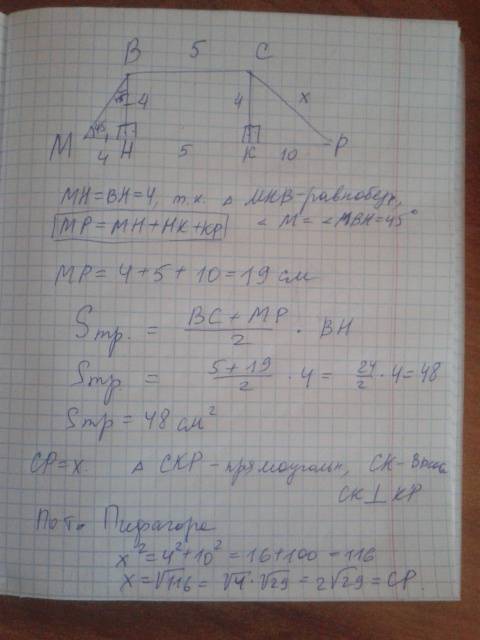 B 5 C
45 4 4 x
M 45 H K P
4 5 10
MH=BH=4, т.к. △ MHB-равнобедр,
MP=MH+HK+KP ∠M=∠MBH=45°
MP=4+5+10=19 см
Sтр. = BC+MP/2 · BH
Sтр = 5+19/2 · 4 = 24/2 · 4=48
Sтр=48 см²
CP=x. △ CKP-прямоугольн, CK-высота
CK⊥KP
По т. Пифагора
x²=4²+10²=16+100=116
x=√116=√4·√29=2√29=CP.